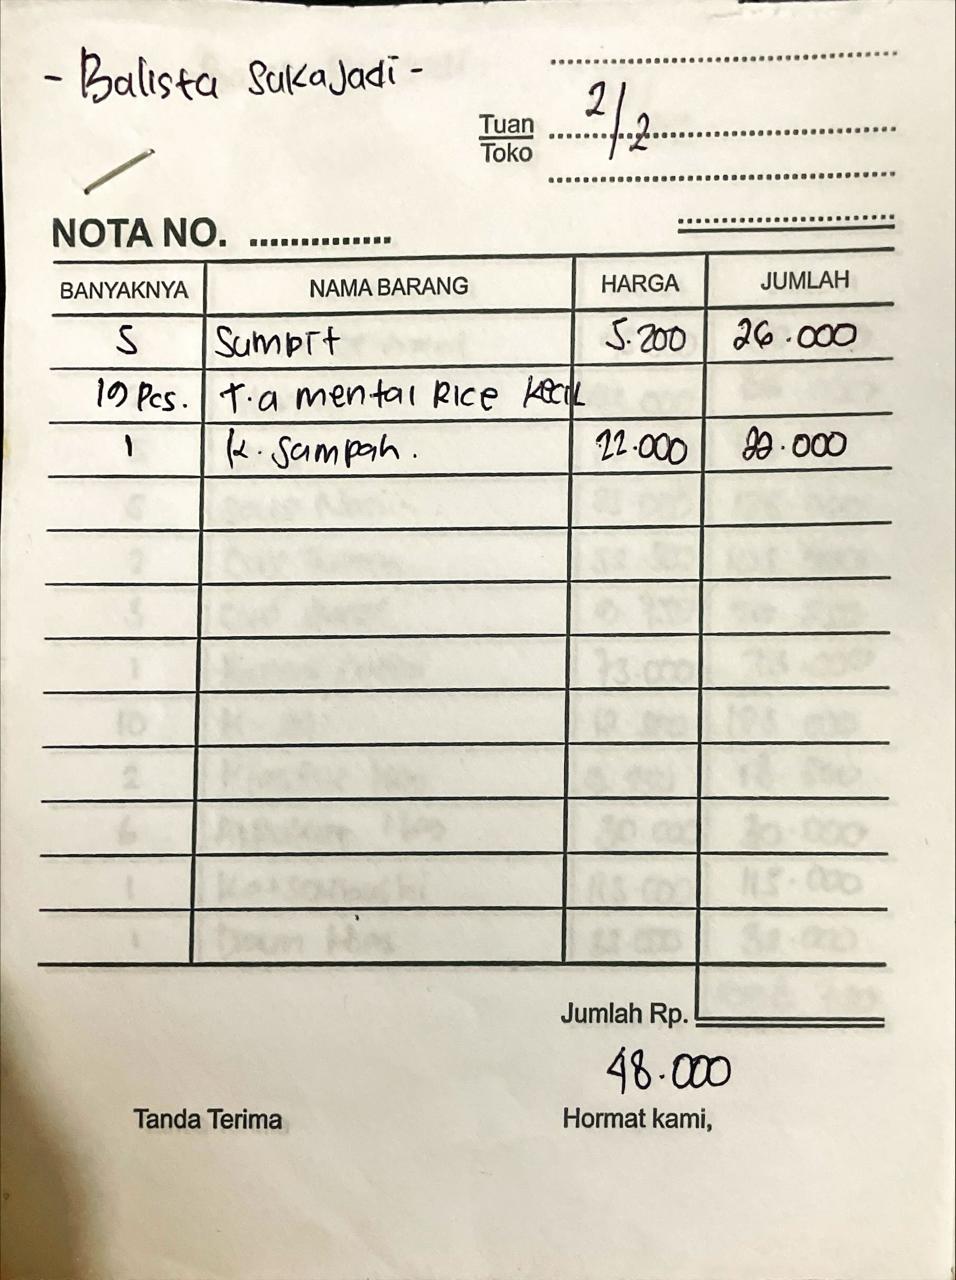 - Balista Sukajadi -
Tuan
Toko
2/2
NOTA NO.
BANYAKNYA NAMA BARANG HARGA JUMLAH
5 Sumpit 5.200 26.000
10 Pcs. T.a mental Rice kecil
1 K. Sampah. 22.000 22.000
Jumlah Rp.
48.000
Tanda Terima Hormat kami,